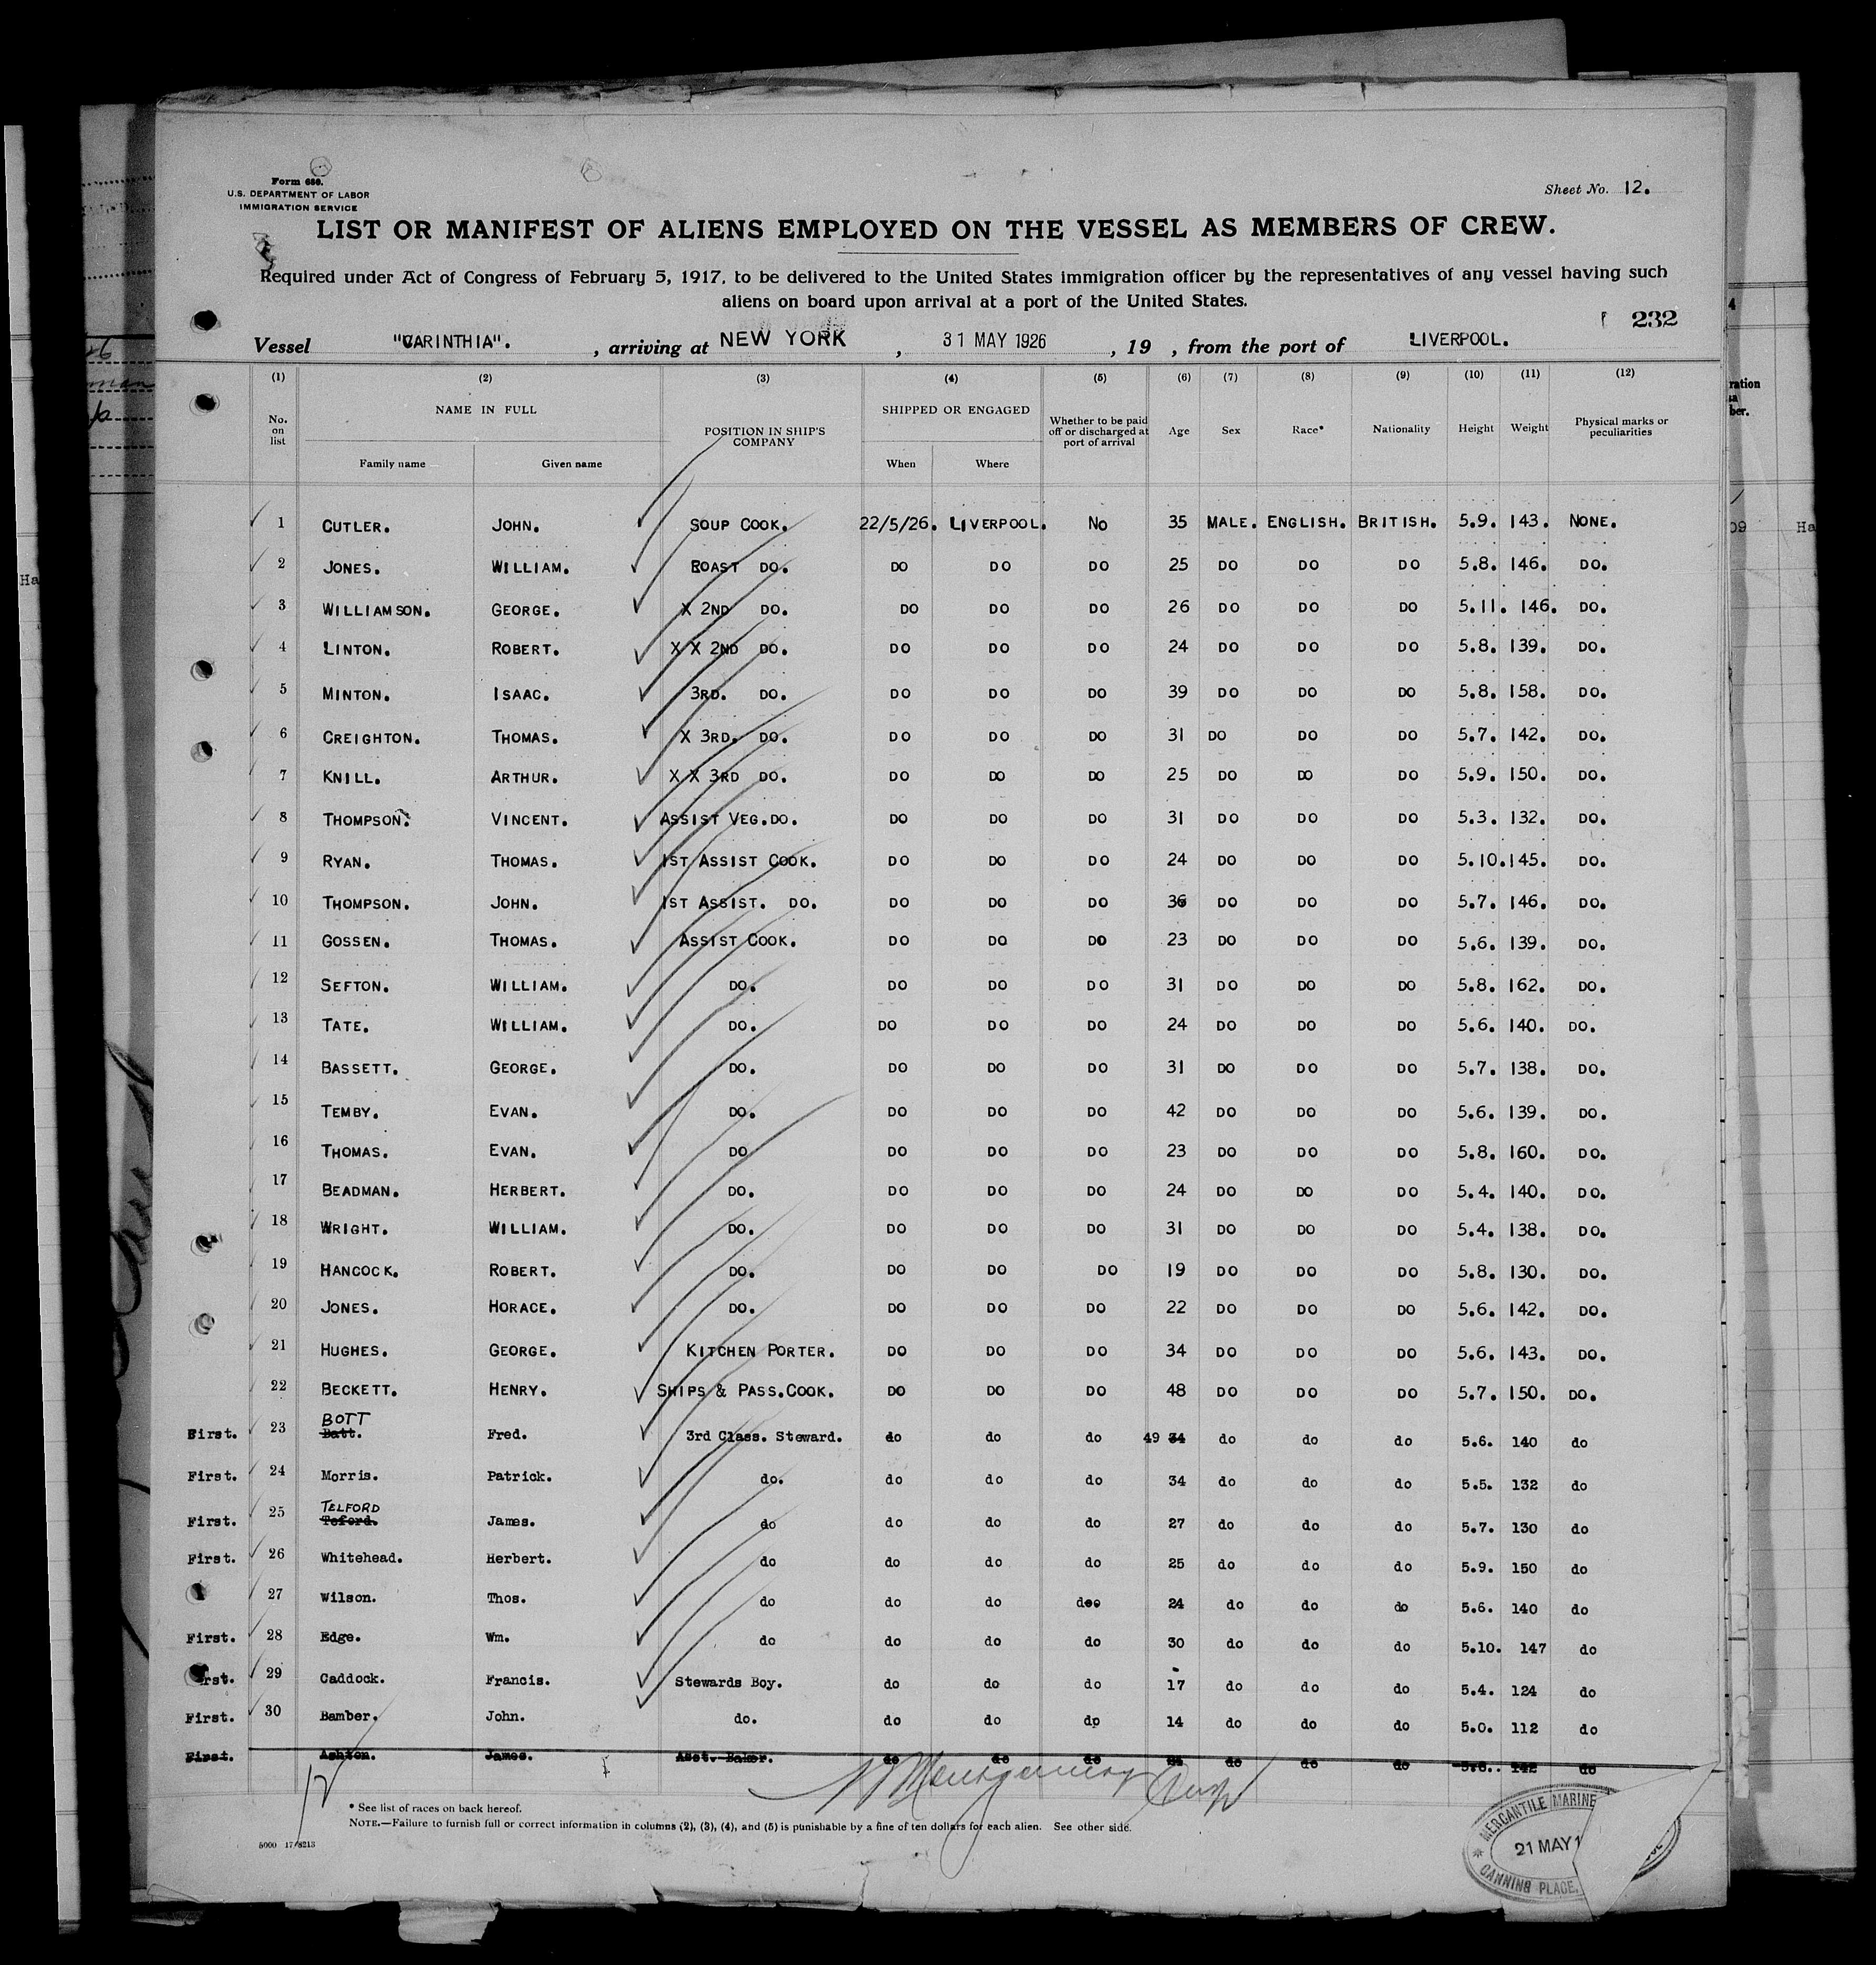 Form 680.
U.S. DEPARTMENT OF LABOR
IMMIGRATION SERVICE
Sheet No. 12.
LIST OR MANIFEST OF ALIENS EMPLOYED ON THE VESSEL AS MEMBERS OF CREW.
Required under Act of Congress of February 5, 1917, to be delivered to the United States immigration officer by the representatives of any vessel having such
aliens on board upon arrival at a port of the United States.
232
Vessel "CARINTHIA". , arriving at NEW YORK , 31 MAY 1926 , 19 , from the port of LIVERPOOL.
(1) (2) (3) (4) (5) (6) (7) (8) (9) (10) (11) (12)
No. on list NAME IN FULL POSITION IN SHIP'S COMPANY SHIPPED OR ENGAGED Whether to be paid off or discharged at port of arrival Age Sex Race* Nationality Height Weight Physical marks or peculiarities
Family name Given name When Where
1 CUTLER. JOHN. SOUP COOK. 22/5/26. LIVERPOOL. NO 35 MALE. ENGLISH. BRITISH. 5.9. 143. NONE.
2 JONES. WILLIAM. ROAST DO. DO DO DO 25 DO DO DO 5.8. 146. DO.
3 WILLIAMSON. GEORGE. X 2ND DO. DO DO DO 26 DO DO DO 5.11. 146. DO.
4 LINTON. ROBERT. X X 2ND DO. DO DO DO 24 DO DO DO 5.8. 139. DO.
5 MINTON. ISAAC. 3RD. DO. DO DO DO 39 DO DO DO 5.8. 158. DO.
6 CREIGHTON. THOMAS. X 3RD. DO. DO DO DO 31 DO DO DO 5.7. 142. DO.
7 KNILL. ARTHUR. X X 3RD DO. DO DO DO 25 DO DO DO 5.9. 150. DO.
8 THOMPSON. VINCENT. ASSIST VEG.DO. DO DO DO 31 DO DO DO 5.3. 132. DO.
9 RYAN. THOMAS. 1ST ASSIST COOK. DO DO DO 24 DO DO DO 5.10. 145. DO.
10 THOMPSON. JOHN. 1ST ASSIST. DO. DO DO DO 36 DO DO DO 5.7. 146. DO.
11 GOSSEN. THOMAS. ASSIST COOK. DO DO DO 23 DO DO DO 5.6. 139. DO.
12 SEFTON. WILLIAM. DO. DO DO DO 31 DO DO DO 5.8. 162. DO.
13 TATE. WILLIAM. DO. DO DO DO 24 DO DO DO 5.6. 140. DO.
14 BASSETT. GEORGE. DO. DO DO DO 31 DO DO DO 5.7. 138. DO.
15 TEMBY. EVAN. DO. DO DO DO 42 DO DO DO 5.6. 139. DO.
16 THOMAS. EVAN. DO DO DO DO 23 DO DO DO 5.8. 160. DO.
17 BEADMAN. HERBERT. DO. DO DO DO 24 DO DO DO 5.4. 140. DO.
18 WRIGHT. WILLIAM. DO. DO DO DO 31 DO DO DO 5.4. 138. DO.
19 HANCOCK. ROBERT. DO. DO DO DO 19 DO DO DO 5.8. 130. DO.
20 JONES. HORACE. DO. DO DO DO 22 DO DO DO 5.6. 142. DO.
21 HUGHES. GEORGE. KITCHEN PORTER. DO DO DO 34 DO DO DO 5.6. 143. DO.
22 BECKETT. HENRY. SHIPS & PASS.COOK. DO DO DO 48 DO DO DO 5.7. 150. DO.
BOTT
First. 23 Batt. Fred. 3rd Class. Steward. do do do 49 34 do do do 5.6. 140 do
First. 24 Morris. Patrick. do. do do do 34 do do do 5.5. 132 do
TELFORD
First. 25 Teford. James. do do do do 27 do do do 5.7. 130 do
First. 26 Whitehead. Herbert. do do do do 25 do do do 5.9. 150 do
27 Wilson. Thos. do do do doo 24 do do do 5.6. 140 do
First. 28 Edge. Wm. do do do do 30 do do do 5.10. 147 do
rst. 29 Caddock. Francis. Stewards Boy. do do do 17 do do do 5.4. 124 do
First. 30 Bamber. John. do. do do do 14 do do do 5.0. 112 do
First. Ashton. James. Asst. Baker. do do do do do do 5.6. 142 do
* See list of races on back hereof.
NOTE.—Failure to furnish full or correct information in columns (2), (3), (4), and (5) is punishable by a fine of ten dollars for each alien. See other side.
5000 17/8213
MERCANTILE MARINE
21 MAY 1
CANNING PLACE.